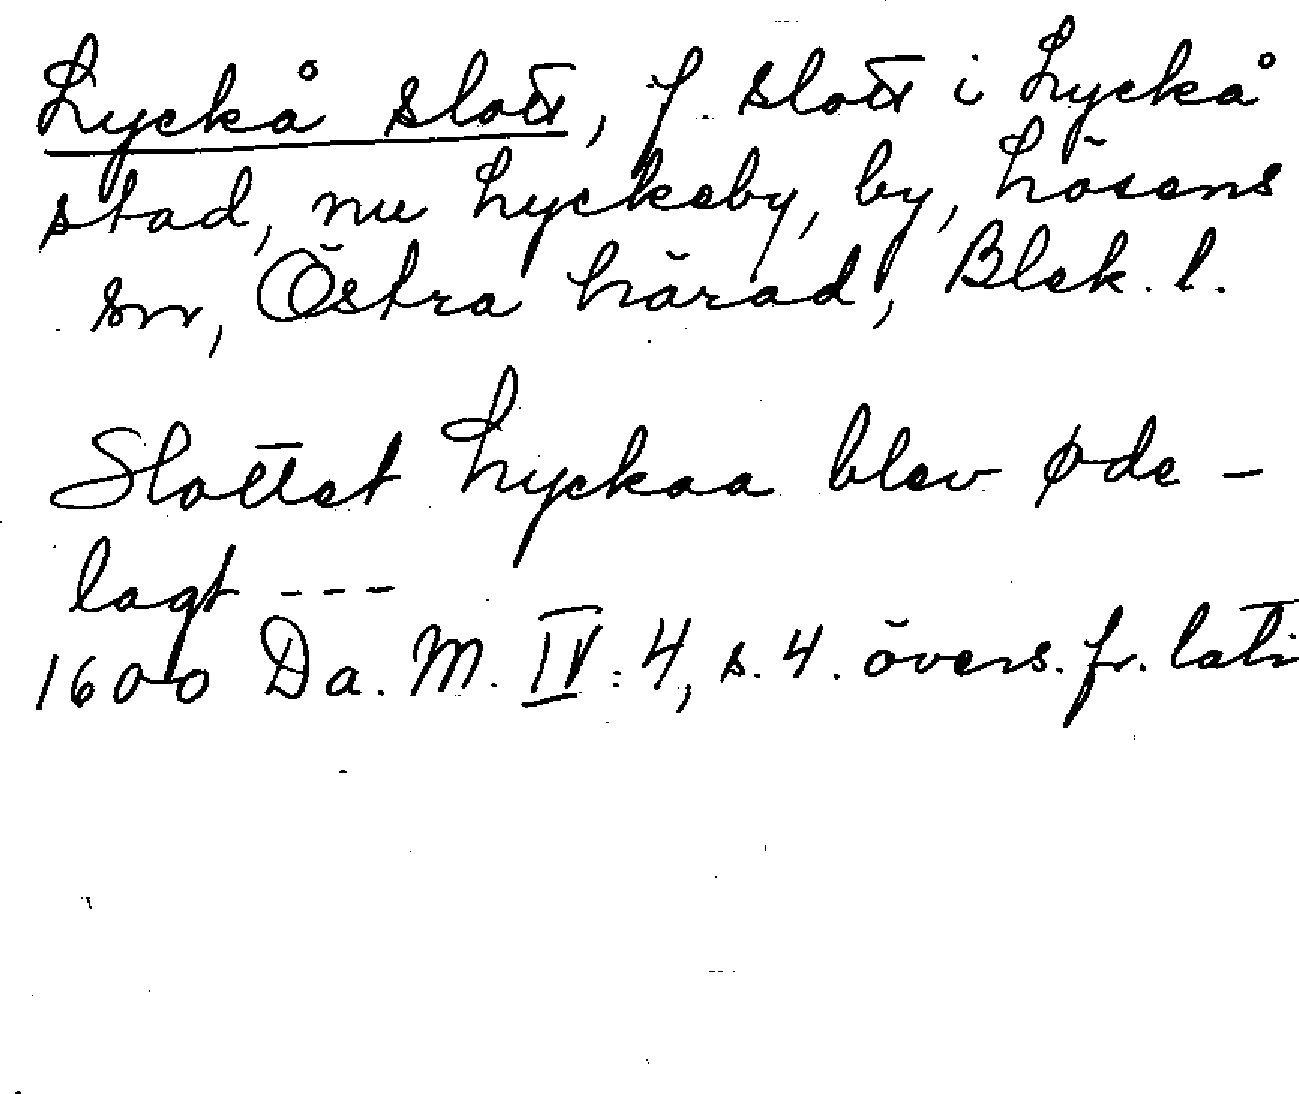 Lyckå slott, f. slott i Lyckå
stad, nu Lyckeby, by, Lösens
sn, Östra härad, Blek. l.
Slottet Lyckaa blev øde-
lagt ---
1600 Da. M. IV: 4, s. 4. övers. fr. lati